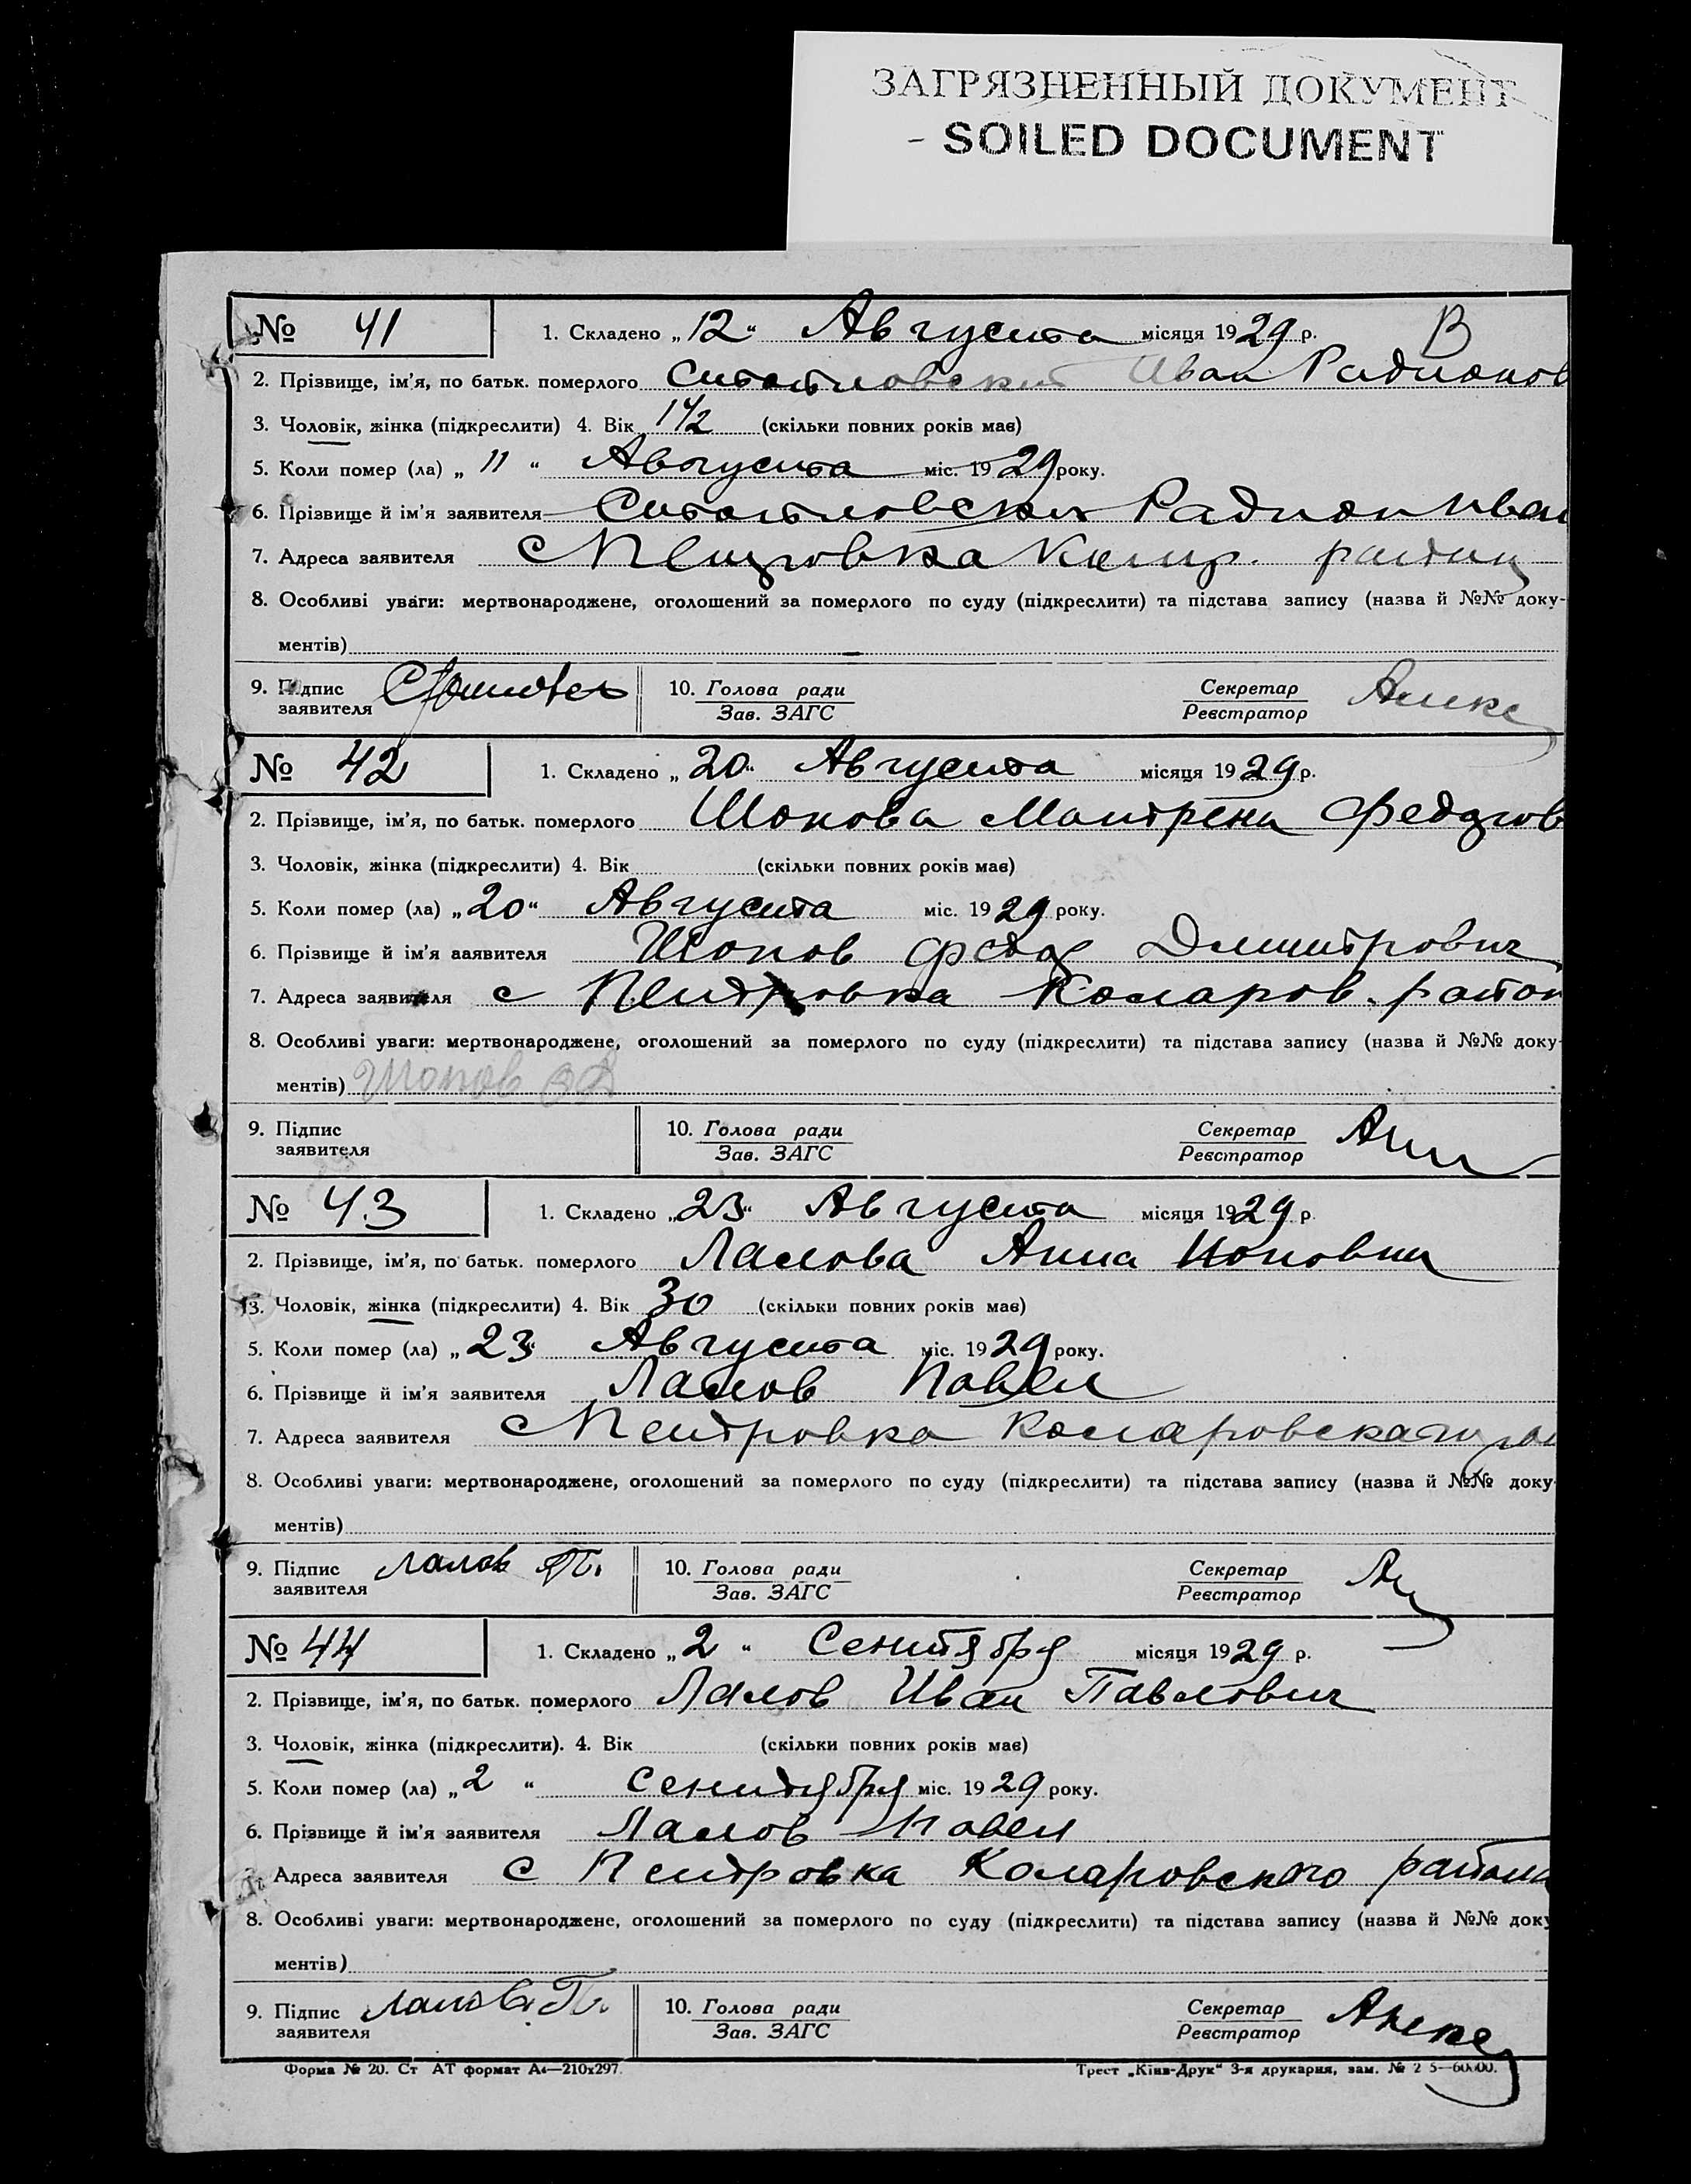 ЗАГРЯЗНЕННЫЙ ДОКУМЕНТ
- SOILED DOCUMENT
№ 41 1. Складено „12“ Августа місяця 1929 р. В
2. Прізвище, ім'я, по батьк. померлого Иван Радионов
3. Чоловік, жінка (підкреслити) 4. Вік 1 1/2 (скільки повних років має)
5. Коли помер (ла) „ 11 “ Августа міс. 1929 року.
6. Прізвище й ім'я заявителя Радион Иван
7. Адреса заявителя с Петровка район
8. Особливі уваги: мертвонароджене, оголошений за померлого по суду (підкреслити) та підстава запису (назва й №№ доку-
ментів)
9. Підпис заявителя 10. Голова ради Зав. ЗАГС Секретар Реєстратор
№ 42 1. Складено „20“ Августа місяця 1929 р.
2. Прізвище, ім'я, по батьк. померлого Шопова Матрена Федоров
3. Чоловік, жінка (підкреслити) 4. Вік (скільки повних років має)
5. Коли помер (ла) „20“ Августа міс. 1929 року.
6. Прізвище й ім'я заявителя Шопов Федор Дмитрович
7. Адреса заявителя с Петровка Коларов. район
8. Особливі уваги: мертвонароджене, оголошений за померлого по суду (підкреслити) та підстава запису (назва й №№ доку-
ментів) Шопов
9. Підпис заявителя 10. Голова ради Зав. ЗАГС Секретар Реєстратор
№ 43 1. Складено „23“ Августа місяця 1929 р.
2. Прізвище, ім'я, по батьк. померлого Лалова Анна
3. Чоловік, жінка (підкреслити) 4. Вік 30 (скільки повних років має)
5. Коли помер (ла) „23“ Августа міс. 1929 року.
6. Прізвище й ім'я заявителя Лалов Павел
7. Адреса заявителя с Петровка Коларовскаго
8. Особливі уваги: мертвонароджене, оголошений за померлого по суду (підкреслити) та підстава запису (назва й №№ доку-
ментів)
9. Підпис заявителя Лалов П. 10. Голова ради Зав. ЗАГС Секретар Реєстратор
№ 44 1. Складено „2“ Сентября місяця 1929 р.
2. Прізвище, ім'я, по батьк. померлого Лалов Иван Павлович
3. Чоловік, жінка (підкреслити). 4. Вік (скільки повних років має)
5. Коли помер (ла) „2 “ сентября міс. 1929 року.
6. Прізвище й ім'я заявителя Лалов Павел
7. Адреса заявителя с Петровка Коларовского района
8. Особливі уваги: мертвонароджене, оголошений за померлого по суду (підкреслити) та підстава запису (назва й №№ доку
ментів)
9. Підпис заявителя Лалов П. 10. Голова ради Зав. ЗАГС Секретар Реєстратор
Форма № 20. Ст АТ формат А4—210х297. Трест „Київ-Друк“ 3-я друкарня, зам. №